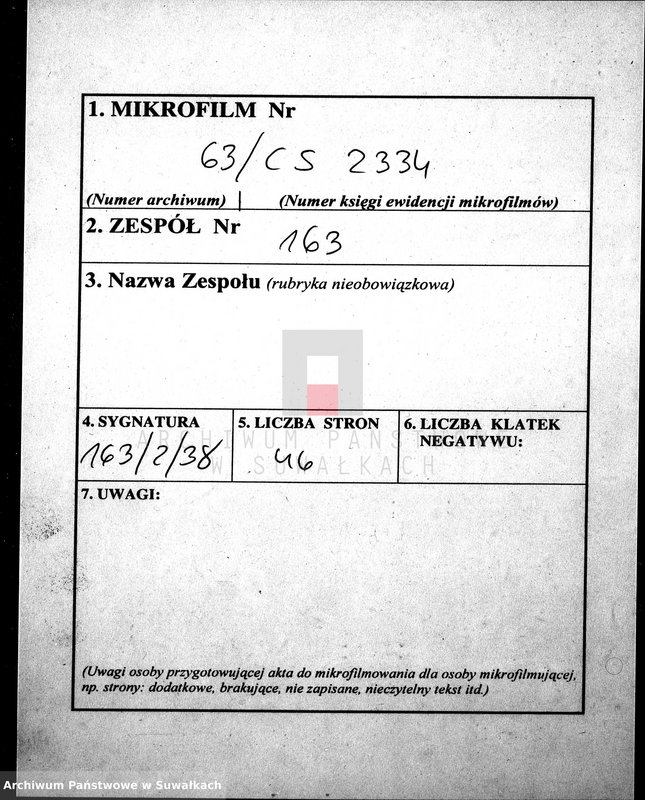 1. MIKROFILM Nr
63/CS 2334
(Numer archiwum) (Numer księgi ewidencji mikrofilmów)
2. ZESPÓŁ Nr
163
3. Nazwa Zespołu (rubryka nieobowiązkowa)
4. SYGNATURA
163/2/38
5. LICZBA STRON
46
6. LICZBA KLATEK
NEGATYWU:
ARCHIWUM PAŃST
W SUWAŁKACH
7. UWAGI:
(Uwagi osoby przygotowującej akta do mikrofilmowania dla osoby mikrofilmującej,
np. strony: dodatkowe, brakujące, nie zapisane, nieczytelny tekst itd.)
Archiwum Państwowe w Suwałkach